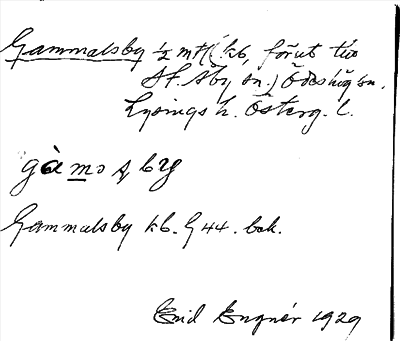 Gammalsby ½ mtl (kb, förut tio
St. Åby sn.) Ödeshög sn.
Lysings h. Österg. l.
gàmɔʂby
Gammalsby kb. G 44. bok.
Enid Engnér 1929